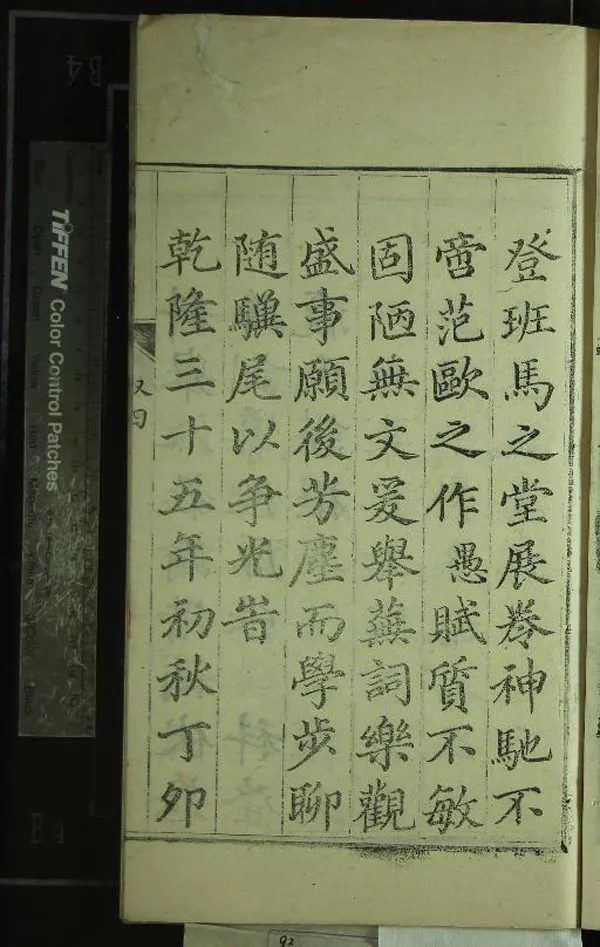 登班馬之堂展券神馳不
啻范歐之作愚賦質不敏
固陋無文爰舉蕪詞樂觀
盛事願後芳塵而學步聊
随驥尾以争光旹
乾隆三十五年初秋丁卯
TIFFEN Color Control Patches
B4
B4
92